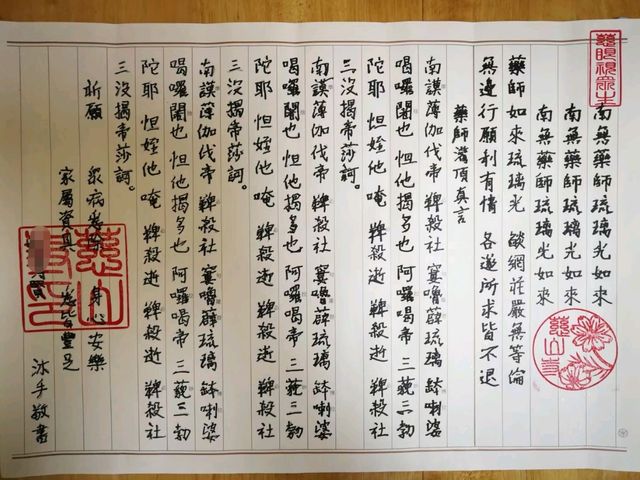 慈眼視眾生
南無藥師琉璃光如來
南無藥師琉璃光如來
南無藥師琉璃光如來
慈山寺
藥師如來琉璃光 燄網莊嚴無等倫
無邊行願利有情 各遂所求皆不退
藥師灌頂真言
南謨薄伽伐帝 鞞殺社 窶嚕薜琉璃 鉢喇婆
喝囉闍也 怛他揭多也 阿囉喝帝 三藐三勃
陀耶 怛姪他 唵 鞞殺逝 鞞殺逝 鞞殺社
三沒揭帝莎訶。
南謨薄伽伐帝 鞞殺社 窶嚕薜琉璃 鉢喇婆
喝囉闍也 怛他揭多也 阿囉喝帝 三藐三勃
陀耶 怛姪他 唵 鞞殺逝 鞞殺逝 鞞殺社
三沒揭帝莎訶。
南謨薄伽伐帝 鞞殺社 窶嚕薜琉璃 鉢喇婆
喝囉闍也 怛他揭多也 阿囉喝帝 三藐三勃
陀耶 怛姪他 唵 鞞殺逝 鞞殺逝 鞞殺社
三沒揭帝莎訶。
祈願
眾病悉除 身心安樂
家屬資具 悉皆豐足
慈山寺印
沐手敬書